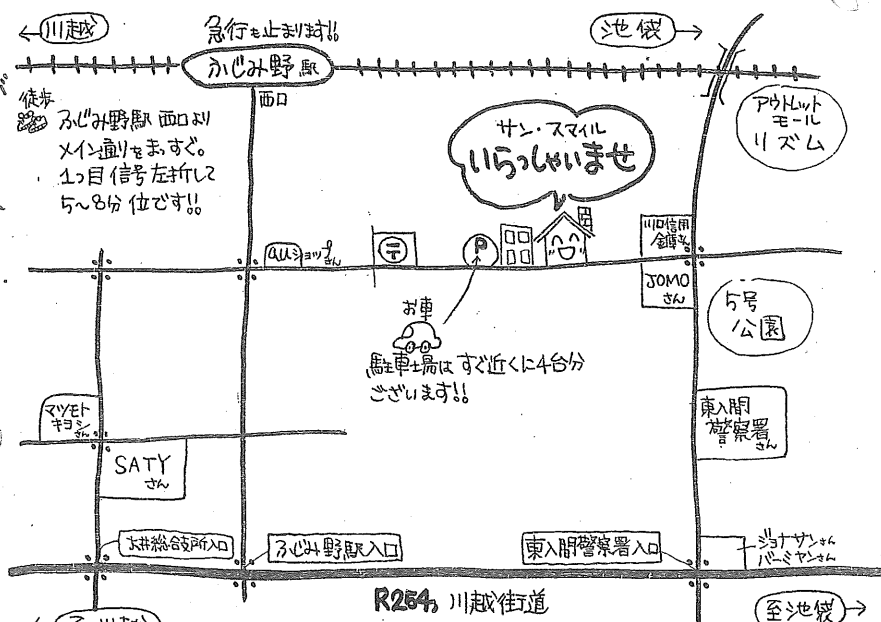 ←川越
急行も止まります!!
池袋→
ふじみ野駅
西口
徒歩
ふじみ野駅 西口より
メイン通りをまっすぐ。
1つ目信号左折して
5〜8分位です!!
アウトレット
モール
リズム
サン・スマイル
いらっしゃいませ
auショップさん
〒
P
川口信用
金庫さん
JOMO
さん
5号
公園
お車
駐車場は すぐ近くに4台分
ございます!!
マツモト
キヨシ
さん
SATY
さん
東入間
警察署
さん
大井総合支所入口
ふじみ野駅入口
東入間警察署入口
ジョナサンさん
バーミヤンさん
R254 川越街道
至池袋→